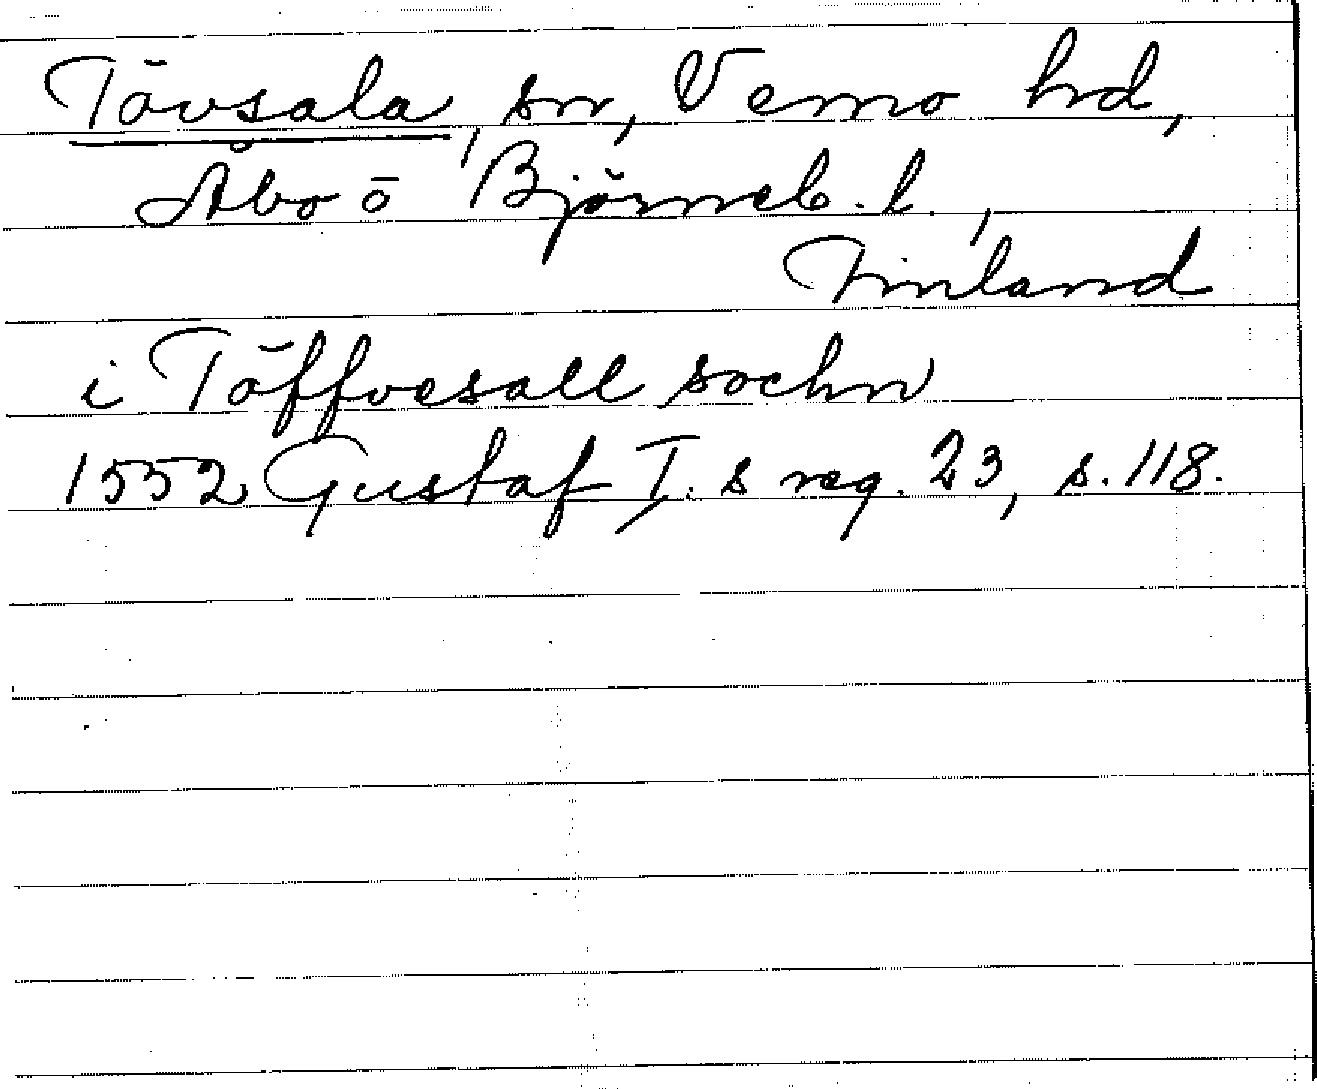 Tövsala, sn, Vemo hd,
Åbo o Björneb. l.,
Finland
i Töffvesall sochn
1552 Gustaf I. s reg. 23, s. 118.